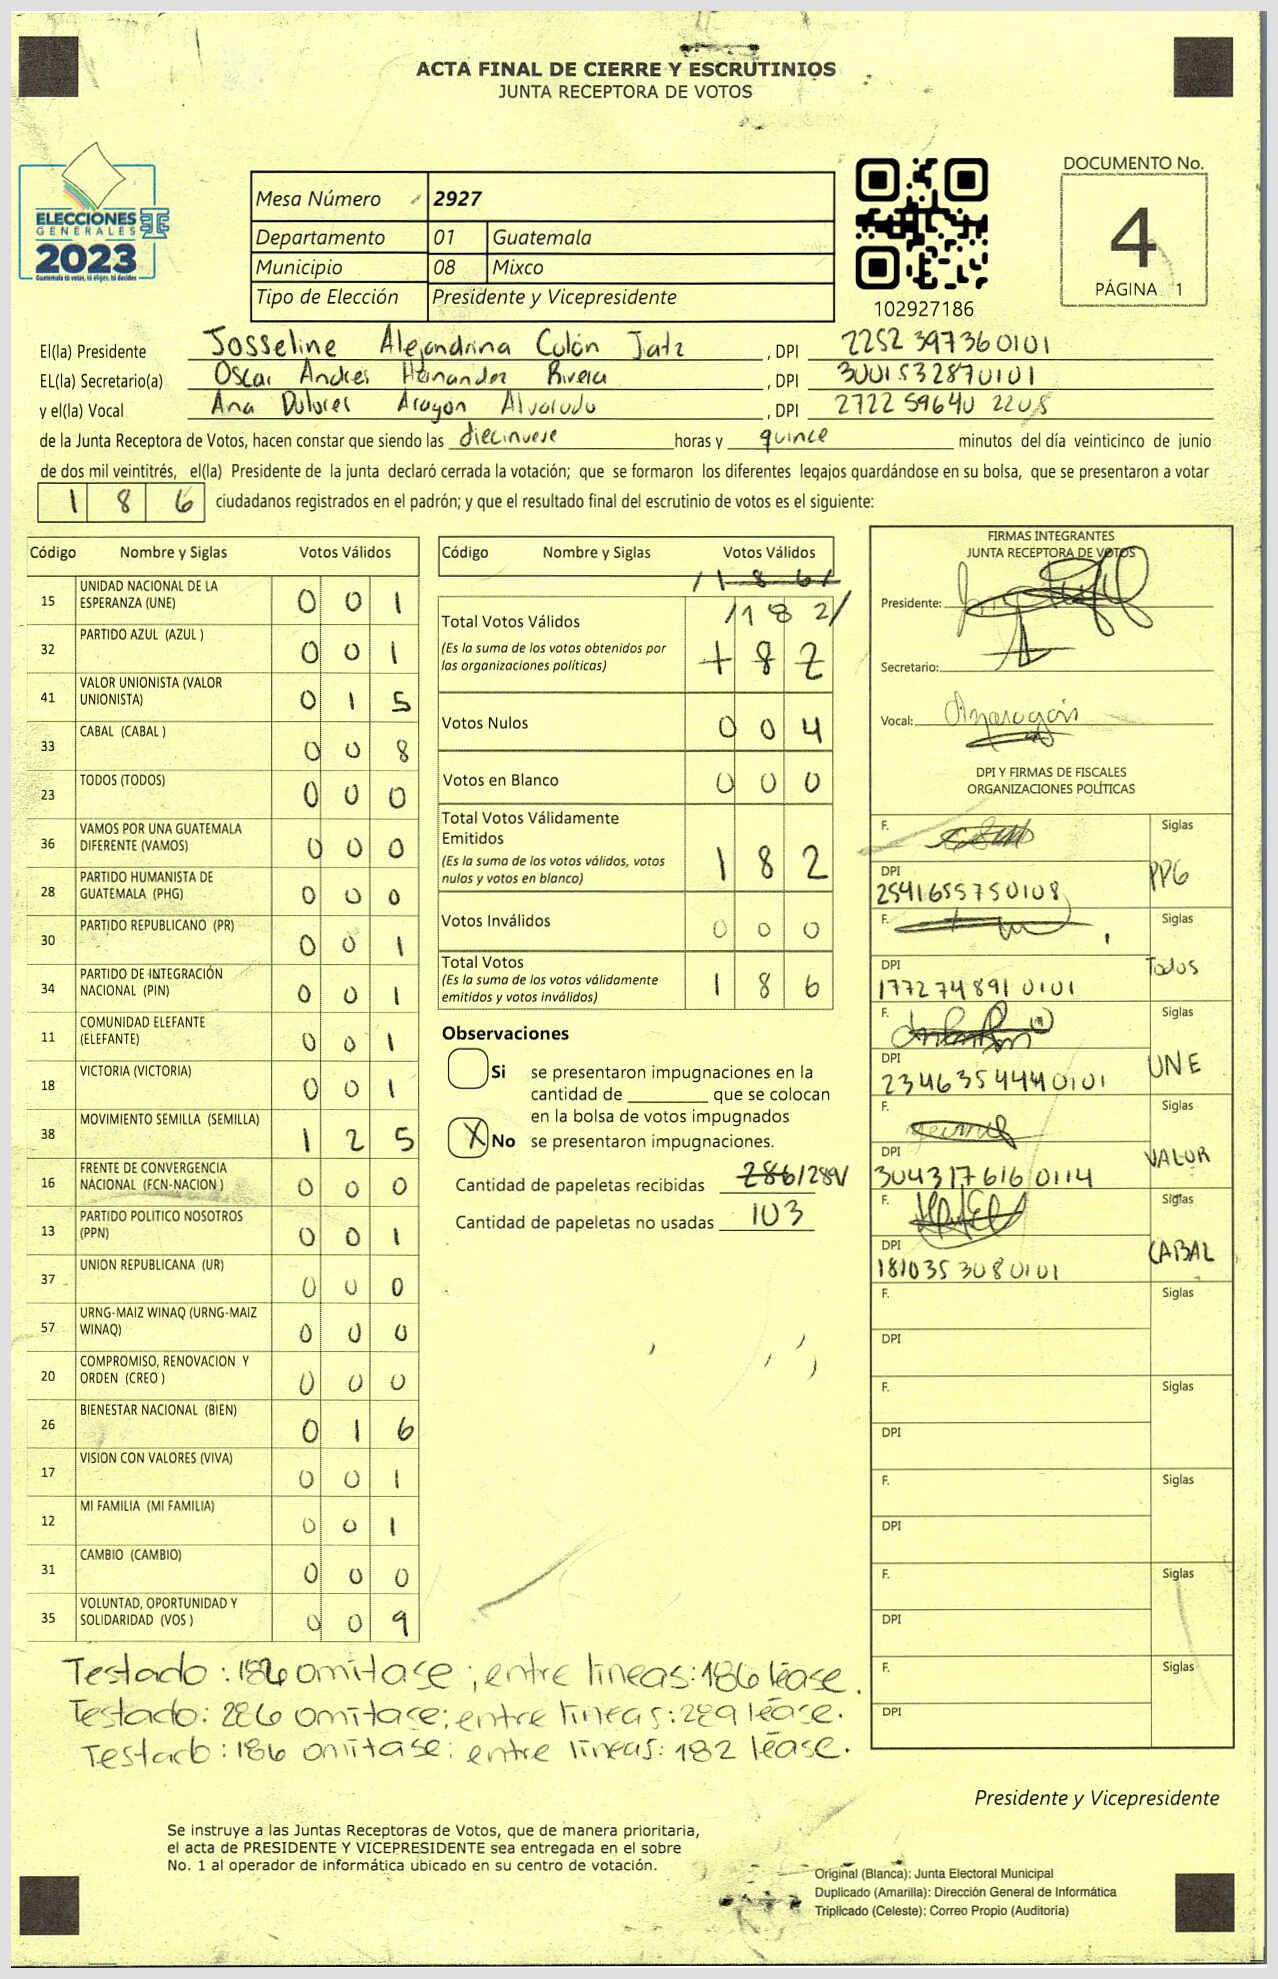 ACTA FINAL DE CIERRE Y ESCRUTINIOS
JUNTA RECEPTORA DE VOTOS
DOCUMENTO No.
4
PÁGINA 1
ELECCIONES
GENERALES
2023
Guatemala tú votas, tú eliges, tú decides
Mesa Número 2927
Departamento 01 Guatemala
Municipio 08 Mixco
Tipo de Elección Presidente y Vicepresidente
102927186
El(la) Presidente Josseline Alejandrina Colón Jatz, DPI 2252 39736 0101
EL(la) Secretario(a) Oscar Andres Hernandez Rivera, DPI 3001532870101
y el(la) Vocal Ana Dolores Aragon Alvarado, DPI 2722 59640 2205
de la Junta Receptora de Votos, hacen constar que siendo las diecinueve horas y quince minutos del día veinticinco de junio
de dos mil veintitrés, el(la) Presidente de la junta declaró cerrada la votación; que se formaron los diferentes legajos guardándose en su bolsa, que se presentaron a votar
1 8 6 ciudadanos registrados en el padrón; y que el resultado final del escrutinio de votos es el siguiente:
Código Nombre y Siglas Votos Válidos
15 UNIDAD NACIONAL DE LA ESPERANZA (UNE) 0 0 1
32 PARTIDO AZUL (AZUL ) 0 0 1
41 VALOR UNIONISTA (VALOR UNIONISTA) 0 1 5
33 CABAL (CABAL ) 0 0 8
23 TODOS (TODOS) 0 0 0
36 VAMOS POR UNA GUATEMALA DIFERENTE (VAMOS) 0 0 0
28 PARTIDO HUMANISTA DE GUATEMALA (PHG) 0 0 0
30 PARTIDO REPUBLICANO (PR) 0 0 1
34 PARTIDO DE INTEGRACIÓN NACIONAL (PIN) 0 0 1
11 COMUNIDAD ELEFANTE (ELEFANTE) 0 0 1
18 VICTORIA (VICTORIA) 0 0 1
38 MOVIMIENTO SEMILLA (SEMILLA) 1 2 5
16 FRENTE DE CONVERGENCIA NACIONAL (FCN-NACION ) 0 0 0
13 PARTIDO POLITICO NOSOTROS (PPN) 0 0 1
37 UNION REPUBLICANA (UR) 0 0 0
57 URNG-MAIZ WINAQ (URNG-MAIZ WINAQ) 0 0 0
20 COMPROMISO, RENOVACION Y ORDEN (CREO ) 0 0 0
26 BIENESTAR NACIONAL (BIEN) 0 1 6
17 VISION CON VALORES (VIVA) 0 0 1
12 MI FAMILIA (MI FAMILIA) 0 0 1
31 CAMBIO (CAMBIO) 0 0 0
35 VOLUNTAD, OPORTUNIDAD Y SOLIDARIDAD (VOS ) 0 0 9
Código Nombre y Siglas Votos Válidos
/1 8 6/
/1 8 2/
Total Votos Válidos
(Es la suma de los votos obtenidos por las organizaciones políticas) 1 8 2
Votos Nulos 0 0 4
Votos en Blanco 0 0 0
Total Votos Válidamente Emitidos
(Es la suma de los votos válidos, votos nulos y votos en blanco) 1 8 2
Votos Inválidos 0 0 0
Total Votos
(Es la suma de los votos válidamente emitidos y votos inválidos) 1 8 6
Observaciones
Si se presentaron impugnaciones en la
cantidad de ________ que se colocan
en la bolsa de votos impugnados
X No se presentaron impugnaciones.
Cantidad de papeletas recibidas 286/289/
Cantidad de papeletas no usadas 103
FIRMAS INTEGRANTES
JUNTA RECEPTORA DE VOTOS
Presidente:
Secretario:
Vocal:
DPI Y FIRMAS DE FISCALES
ORGANIZACIONES POLÍTICAS
F. Siglas
DPI 2541655750108 PPG
F. Siglas
DPI 1772 74891 0101 Todos
F. Siglas
DPI 2346354440101 UNE
F. Siglas
DPI 3043176160114 VALOR
F. Siglas
DPI 1810353080101 CABAL
F. Siglas
DPI
F. Siglas
DPI
F. Siglas
DPI
F. Siglas
DPI
F. Siglas
DPI
Testado: 186 omitase; entre lineas: 186 léase.
Testado: 286 omitase; entre lineas: 289 léase.
Testado: 186 omitase; entre lineas: 182 léase.
Presidente y Vicepresidente
Se instruye a las Juntas Receptoras de Votos, que de manera prioritaria,
el acta de PRESIDENTE Y VICEPRESIDENTE sea entregada en el sobre
No. 1 al operador de informática ubicado en su centro de votación.
Original (Blanca): Junta Electoral Municipal
Duplicado (Amarilla): Dirección General de Informática
Triplicado (Celeste): Correo Propio (Auditoria)